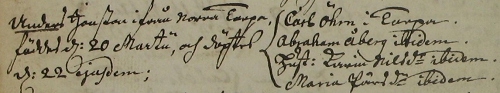 Anders Jonsson ifrån Norra Torpa,
föddes d: 20 Martii, och döptes
d: 22 ejusdem;
Carl Öhrn i Torpa.
Abraham Åberg ibidem.
Hust: Karin Nilsdr ibidem.
Maria Pärsdr ibidem.